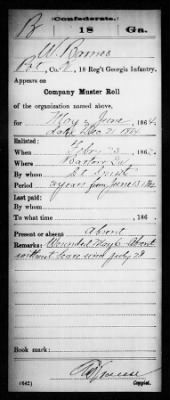 Confederate.
B 18 Ga.
W. Barnes
Pvt, Co. , 18 Reg't Georgia Infantry.
Appears on
Company Muster Roll
of the organization named above,
for May & June, 1864.
dated Dec 31 1864
Enlisted:
When Feby 23, 186 .
Where Bartow Co
By whom Lt
Period 3 years from June 13 1861
Last paid:
By whom
To what time , 186 .
Present or absent Absent
Remarks: Wounded May 6 Absent
without leave since July 28
Book mark:
(642) Copyist.